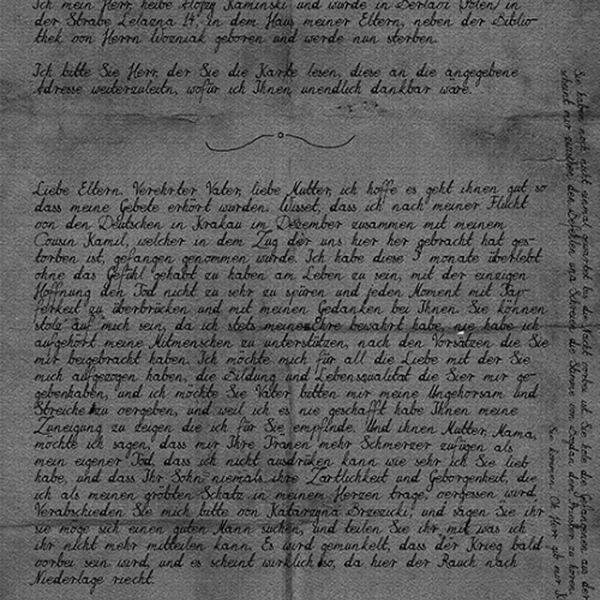 Ich mein Herr, heiße Alojzy Kaminski und wurde in Berlavi (Polen) in
der Straße Lelazna 14. In dem Haus meiner Eltern, neben der Biblio-
thek von Herrn Wozniak geboren und werde nun sterben.
Ich bitte Sie Herr, der Sie die Karte lesen, diese an die angegebene
Adresse weiterzuleiten, wofür ich Ihnen unendlich dankbar wäre.
Liebe Eltern. Verehrter Vater, liebe Mutter, ich hoffe es geht ihnen gut so
dass meine Gebete erhört wurden. Wisset, dass ich nach meiner Flucht
von den Deutschen in Krakau im Dezember zusammen mit meinem
Cousin Kamil, welcher in dem Zug der uns hier her gebracht hat ges-
torben ist, gefangen genommen wurde. Ich habe diese 3 monate überlebt
ohne das Gefühl gehabt zu haben am Leben zu sein, mit der einzigen
Hoffnung den Tod nicht zu sehr zu spüren und jeden Moment mit Tap-
ferkeit zu überbrücken und mit meinen Gedanken bei Ihnen. Sie können
stolz auf mich sein, da ich stets meine Ehre bewahrt habe, nie habe ich
aufgehört meine Mitmenschen zu unterstützen, nach den Vorsätzen die Sie
mir beigebracht haben. Ich möchte mich für all die Liebe mit der Sie
mich aufgezogen haben, die Bildung und Lebensqualität die Sier mir ge-
gebenhaben, und ich möchte Sie Vater bitten mir meine Ungehorsam und
Streiche zu vergeben, und weil ich es nie geschafft habe Ihnen meine
Zuneigung zu zeigen die ich für Sie empfinde. Und ihnen Mutter, Mama,
möchte ich sagen, dass mir Ihre Tränen mehr Schmerzer zufügen als
mein eigener Tod, dass ich nicht ausdrüken kann wie sehr ich Sie lieb
habe, und dass Ihr Sohn niemals ihre Zärtlichkeit und Geborgenheit, die
ich als meinen größten Schatz in meinem Herzen trage, vergessen wird.
Verabschieden Sie mich bitte von Katarzyna Brzezicki, und sagen Sie ihr
sie möge sich einen guten Mann suchen, und teilen Sie ihr mit was ich
ihr nicht mehr mitteilen kann. Es wird gemunkelt, dass der Krieg bald
vorbei sein wird, und es scheint wirklich so, da hier der Rauch nach
Niederlage riecht.
Sie haben noch nicht einmal gewartet bis die Nacht vorbei ist. Sie hole die Gefangenen aus der
scheint mir zwischen den Befehlen und Schreie die Stimme von Bogdan dem Priester zu hören.
Sie kommen. Oh Herr gib mir